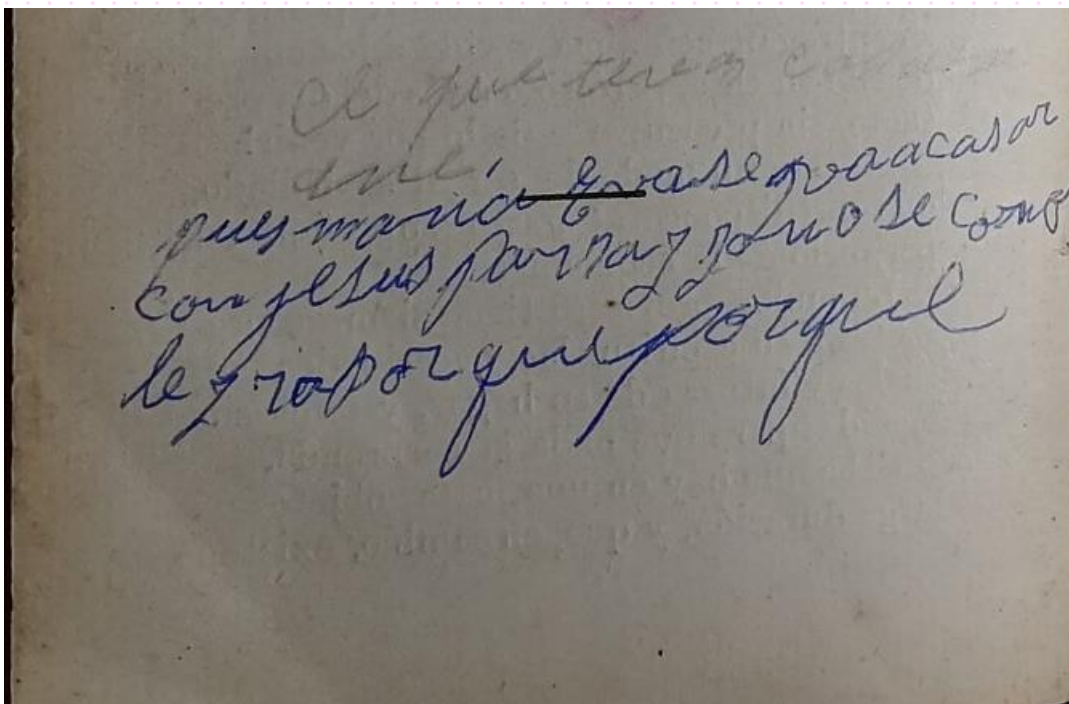 el que tenga
que
pues maria Eva se va a casar
con jesus parra y yo no se como
le ira por que por que